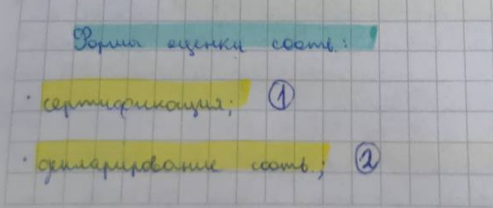 Форма оценки соотв.:
· сертификация; ①
· декларирование соотв.; ②